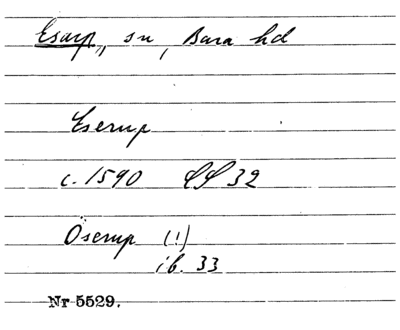 Esarp, sn, Bara hd
Eserup
c. 1590 LL 32
Öserup (!)
ib. 33
Nr 5529.